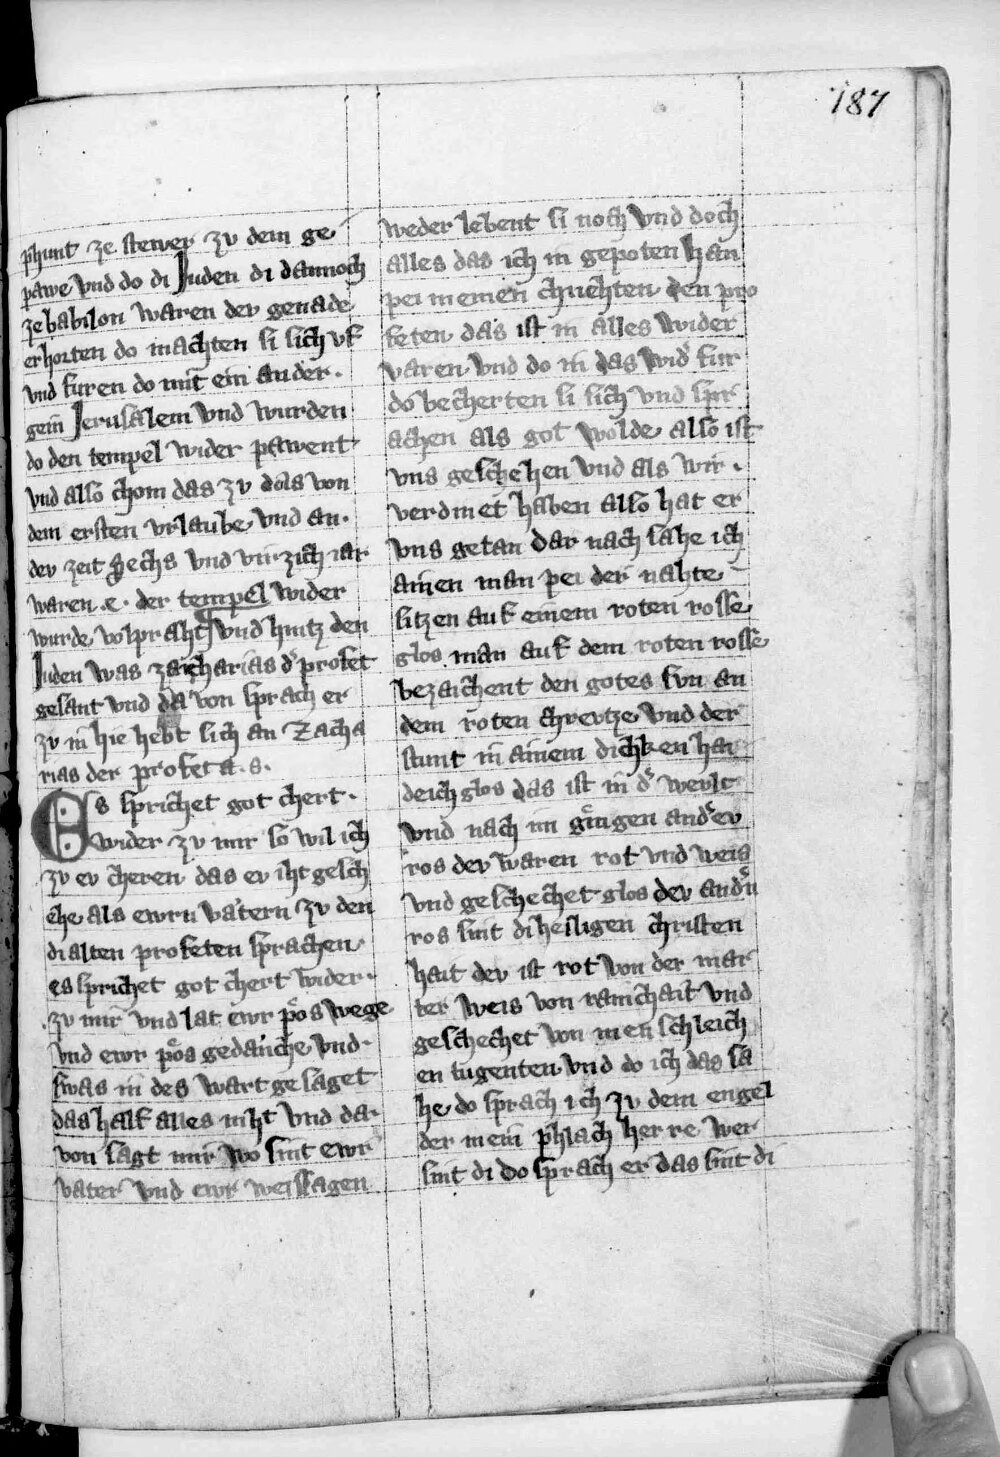 187
phunt ze stewer zv dem ge
pawe vnd do di Juden di dannoch
ze babilon waren der genade
erhorten do machten si sich vf
vnd furen do mit ein ander.
gein Jerusalem vnd wurden
do den tempel wider pawent
vnd also chom das zv das von
dem ersten vrlaube vnd an.
der zeit sechs vnd virzich iar
waren .e. der tempel wider
wurde volpraht vnd hintz den
Juden was zacharias d̾ profet
gesant vnd da von sprach er
zv in hie hebt sich an Zacha
rias der profeta. s.
Es sprichet got chert.
wider zv mir so wil ich
zv ev cheren das ev iht gesch
ehe als ewrn vatern zv den
di alten profeten sprachen
es sprichet got chert wider.
zv mir vnd lat ewr poͤs wege
vnd ewr poͤs gedanche vnd.
swas in des wart gesaget
das half alles niht vnd da.
von sagt mir wo sint ewr
vater vnd ewr weissagen
weder lebent si noch vnd doch
alles das ich in gepoten han
pei meinen chnehten den pro
feten das ist in alles wider
varen vnd do in das wid̾ fur
do becherten si sich vnd spr
achen als got wolde also ist
vns geschehen vnd als wir.
verdinet haben also hat er
vns getan dar nach sahe ich
ainen man pei der nahte
sitzen auf einem roten rosse
glos. man auf dem roten rosse
bezaichent den gotes svn an
dem roten chrevtze vnd der
stunt in ainem dichken hai
deich glos das ist in d̾ werlt
vnd nach im giengen and̾ ev
ros dev waren rot vnd weis
vnd geschechet glos dev and̾n
ros sint di heiligen christen
hait dev ist rot von der mar
ter weis von rainchait vnd
geschechet von menschleich
en tugenten vnd do ich das sa
he do sprach ich zv dem engel
der mein phlach herre wer
sint di do sprach er das sint di